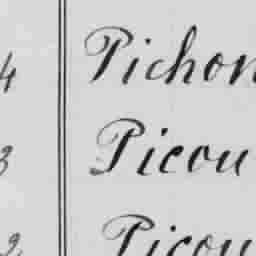 4 Pichon
3 Picou
2 Picou